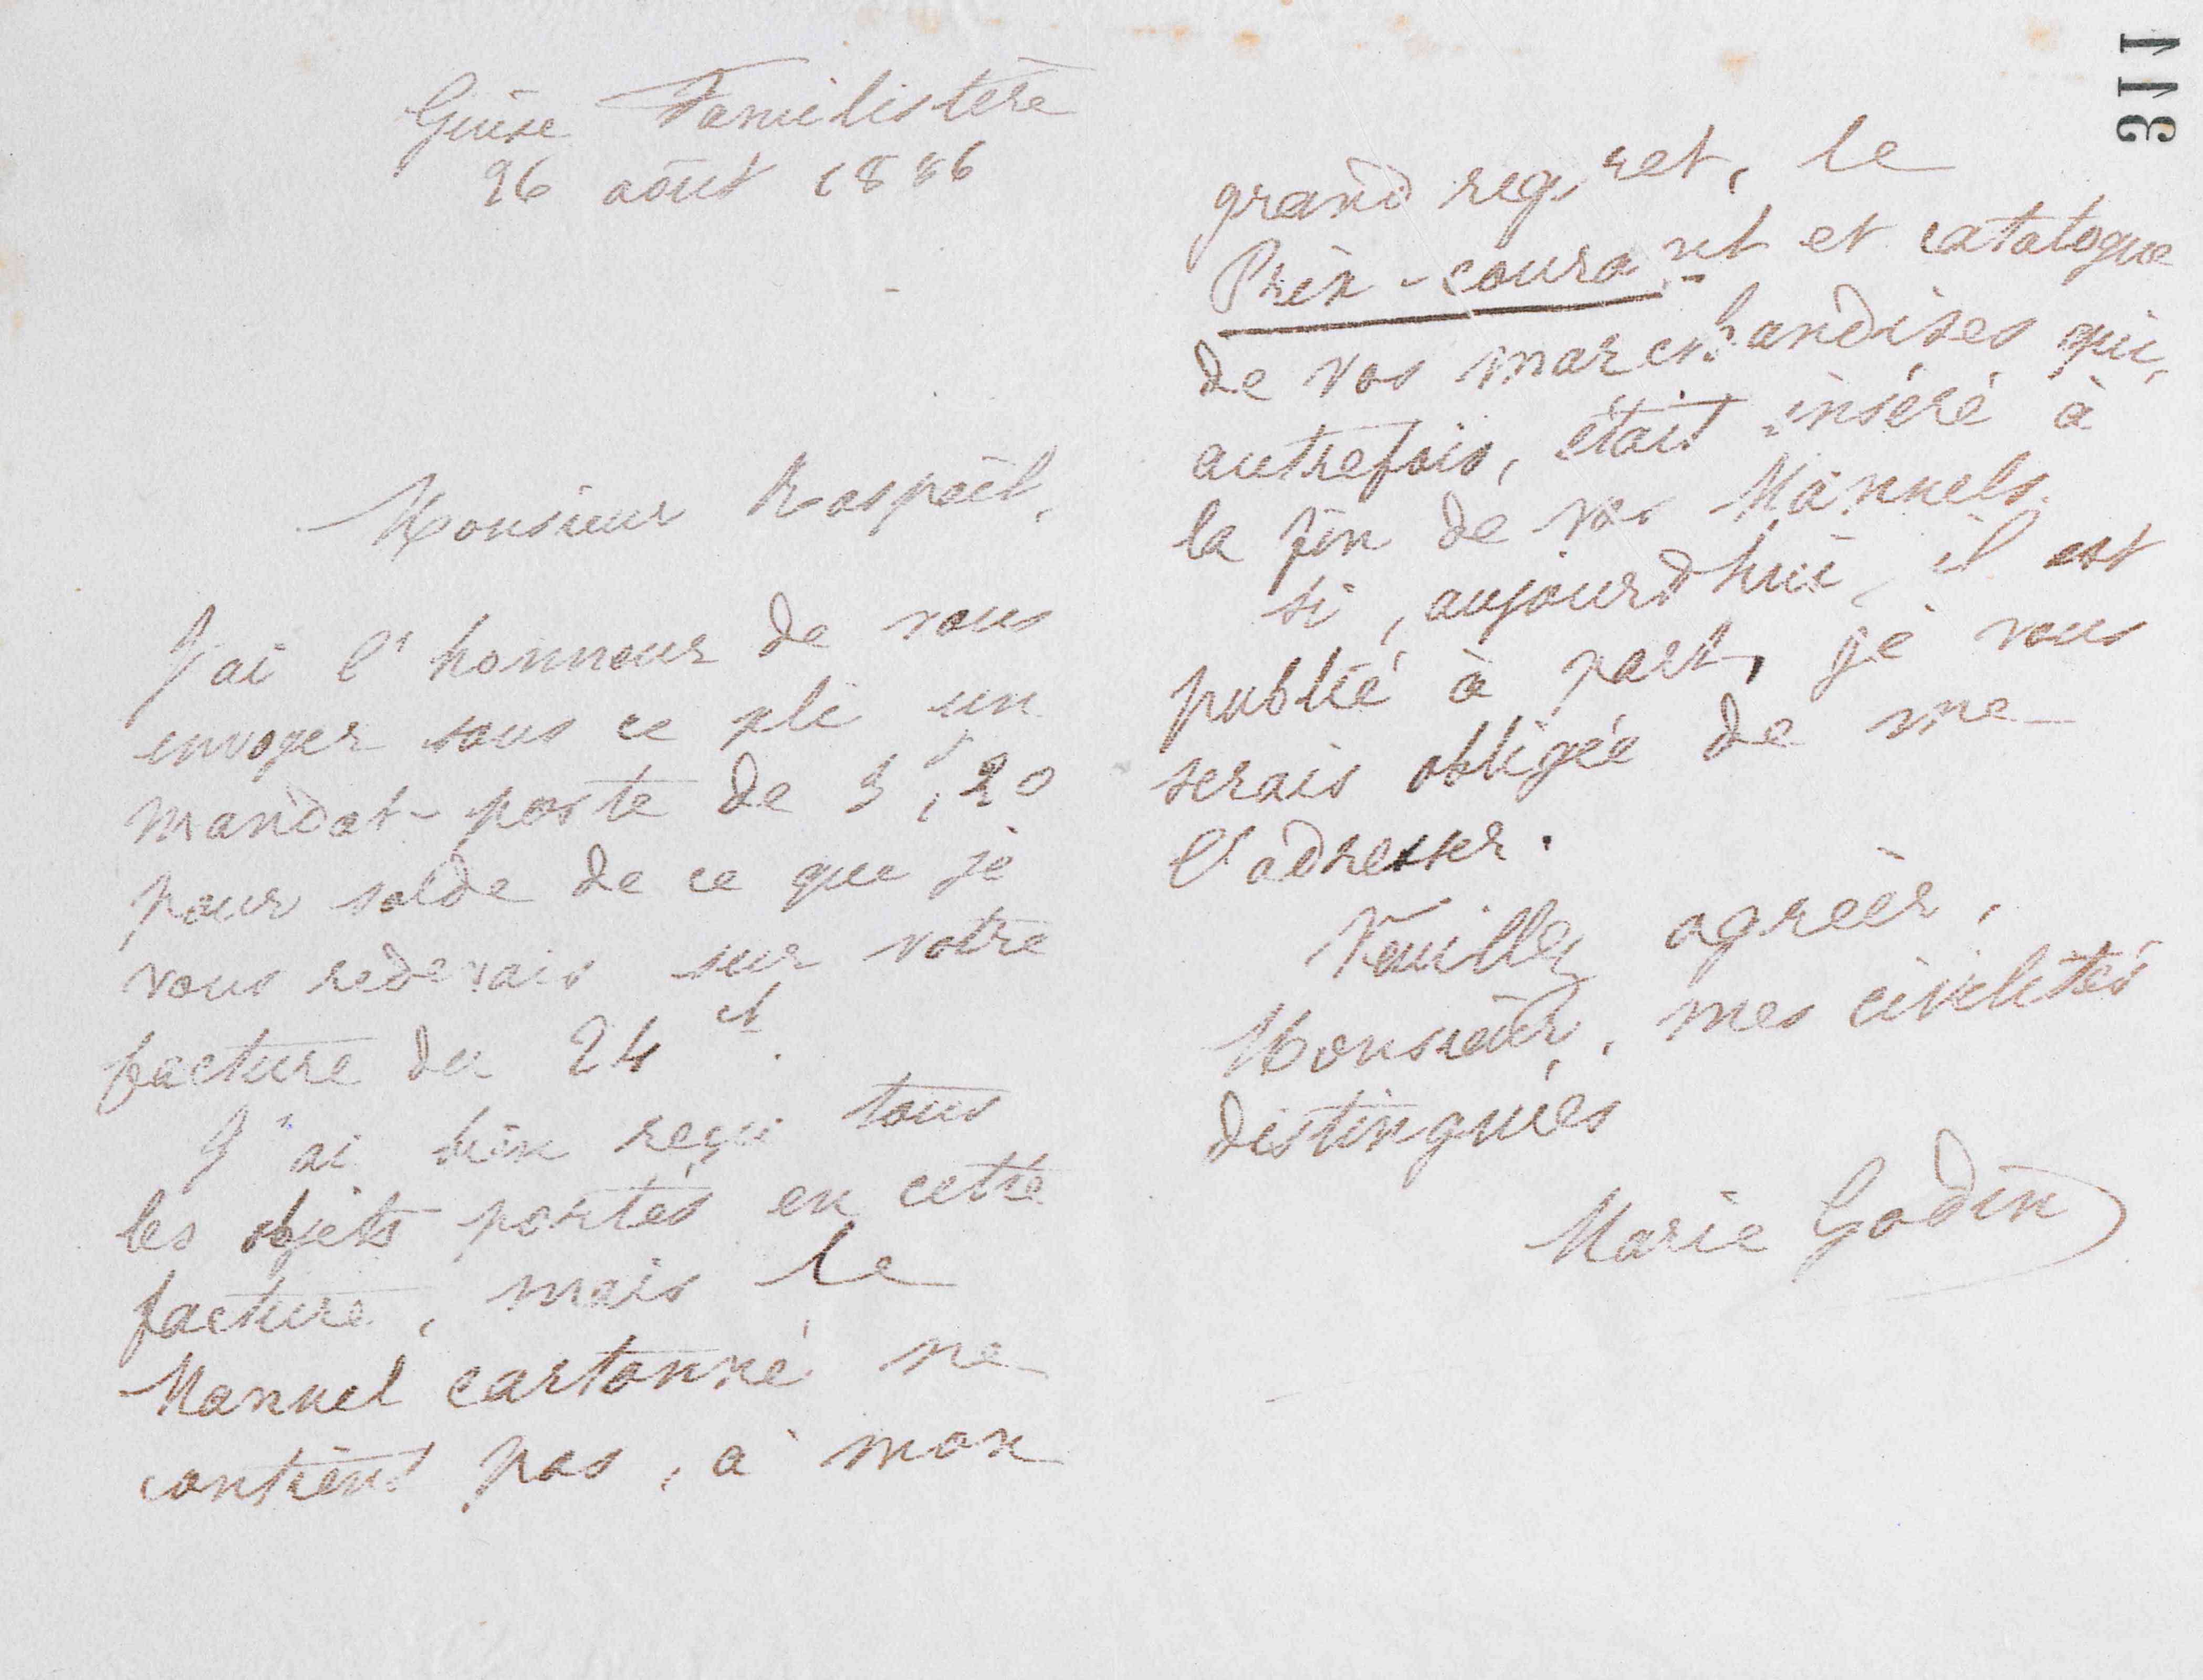 Guise Familistère
26 août 1886
Monsieur Raspail,
J'ai l'honneur de vous
envoyer sous ce pli un
mandat-poste de 3f,20
pour solde de ce que je
vous redevais sur votre
facture du 24 ct.
J'ai bien reçu tous
les objets portés en cette
facture, mais le
Manuel cartonné ne
contient pas, à mon
grand regret, le
Prix-courant et catalogue
de vos marchandises qui,
autrefois, était inséré à
la fin de vos Manuels.
si, aujourd'hui, il est
publié à part, je vous
serais obligée de me
l'adresser.
Veuillez agréer,
Monsieur, mes civilités
distinguées
Marie Godin
311